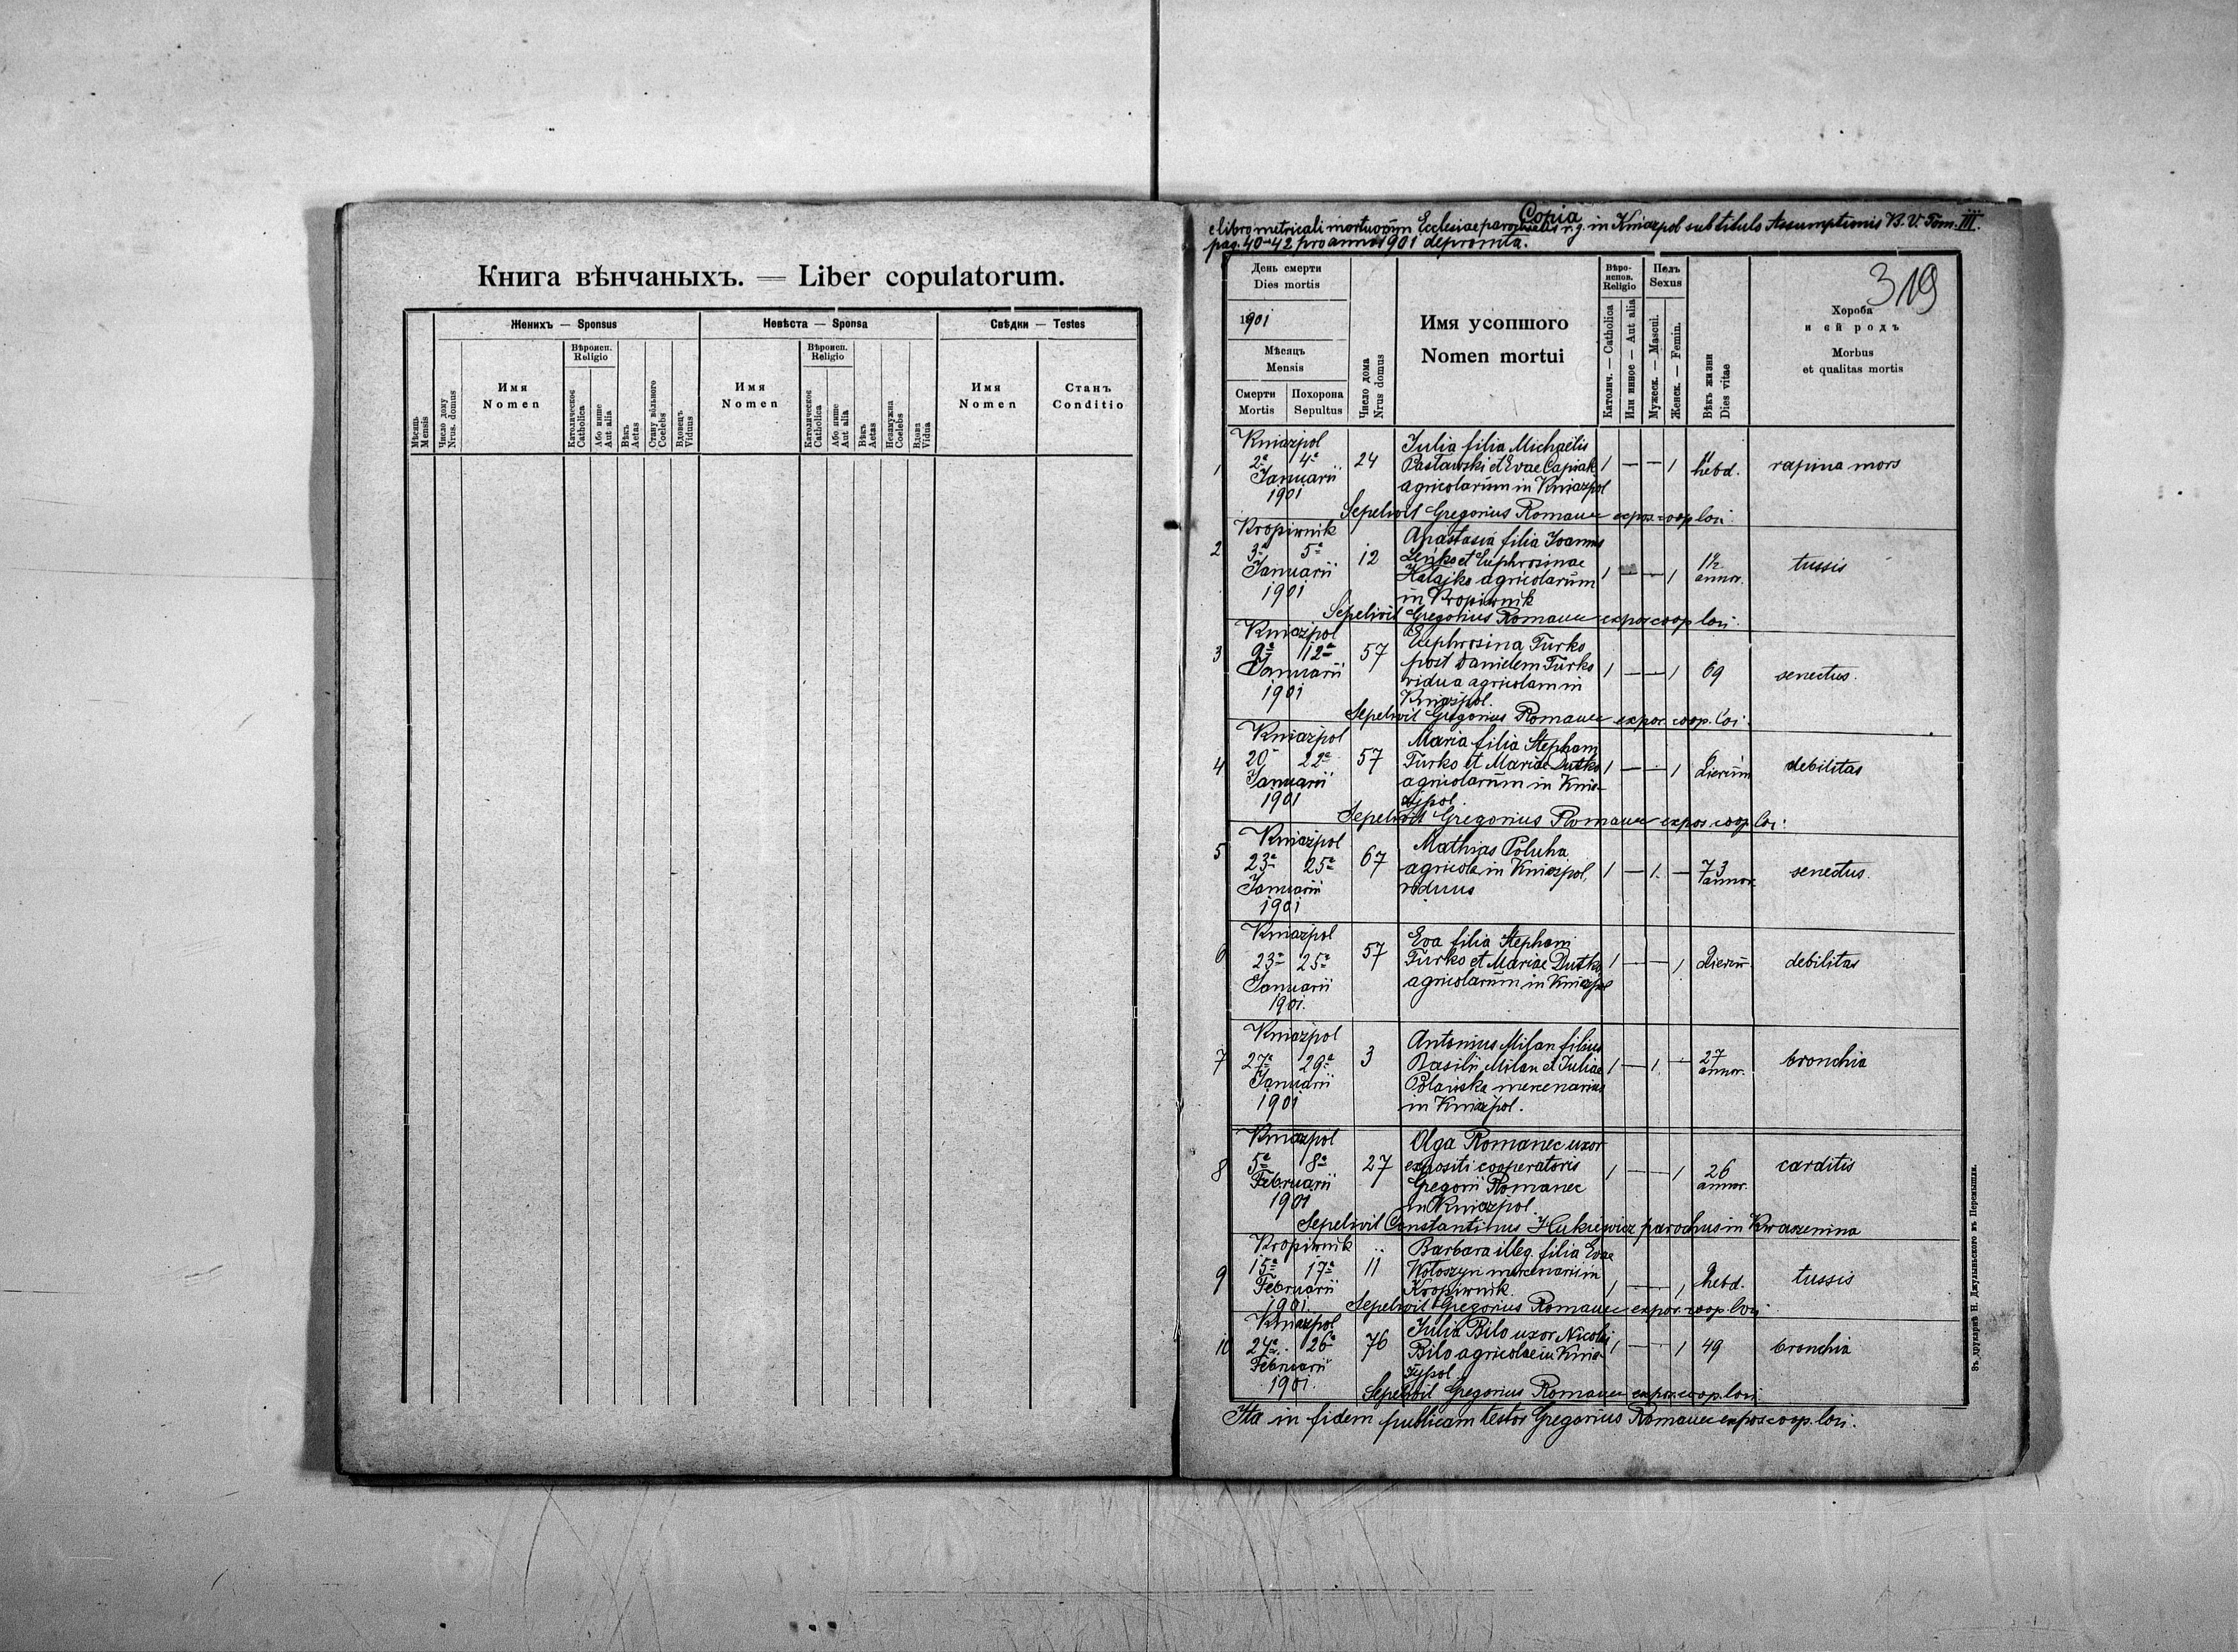 Книга вѣнчаныхъ. — Liber copulatorum.
Женихъ — Sponsus
Невѣста — Sponsa
Свѣдки — Testes
Мѣсяць Mensis
Число дому Nrus. domus
Имя
Nomen
Вѣроисп.
Religio
Католическое Catholica
Або инше Aut alia
Вѣкъ Aetas
Стану вольного Coelebs
Вдовець Viduus
Имя
Nomen
Вѣроисп.
Religio
Католическое Catholica
Або инше Aut alia
Вѣкъ Aetas
Незамужна Coelebs
Вдова Vidua
Имя
Nomen
Станъ
Conditio
Copia
e libro metricali mortuorum Ecclesiae parochialis r. g. in Kniazpol sub titulo Assumptionis B. V. Tom. III.
pag. 40-42 pro anno 1901 depromta.
319
День смерти
Dies mortis
1901
Мѣсяць
Mensis
Смерти
Mortis
Похорона
Sepultus
Число дома
Nrus domus
Имя усопшого
Nomen mortui
Вѣро-
испов.
Religio
Католич. — Catholica
Или инное — Aut alia
Полъ
Sexus
Мужеск. — Mascul.
Женск. — Femin.
Вѣкъ жизни
Dies vitae
Хороба
и єй родъ
Morbus
et qualitas mortis
Kniazpol
1 2a 4a Januarii 1901 24
Julia filia Michaelis
Pastawski et Evae Capiak
agricolarum in Kniazpol
1 — — 1 11 hebd. rapina mors
Sepelivit Gregorius Romanec expos. coop. loci.
Kropiwnik
2 3a 5a Januarii 1901 12
Anastasia filia Joannis
et Euphrosinae
Hałajko agricolarum
in Kropiwnik
1 — — 1 1½ annor. tussis
Sepelivit Gregorius Romanec expos. coop. loci.
Kniazpol
3 9a 12a Januarii 1901 57
Euphrosina Turko
post Danielem Turko
vidua agricolam in
Kniazpol.
1 — — 1 69 senectus.
Sepelivit Gregorius Romanec expos. coop. loci.
Kniazpol
4 20 22a Januarii 1901 57
Maria filia Stephani
Turko et Mariae Dutko
agricolarum in Knia-
zpol.
1 — — 1 dierum debilitas
Sepelivit Gregorius Romanec expos. coop. loci.
Kniazpol
5 23a 25a Januarii 1901 67
Mathias Poluha
agricola in Kniazpol,
viduus
1 — 1. — 73 annor. senectus.
Kniazpol
6 23a 25a Januarii 1901. 57
Eva filia Stephani
Turko et Mariae Dutko
agricolarum in Kniazpol
1 — — 1 dierum debilitas
Kniazpol
7 27a 29a Januarii 1901 3
Antonius Milan filius
Basilii Milan et Juliae
Polańska mercenarius
in Kniazpol.
1 — 1. — 27 annor. bronchia
Kniazpol
8 5a 8a Februarii 1901 27
Olga Romanec uxor
expositi cooperatoris
Gregorii Romanec
in Kniazpol.
1 — — 1 26 annor. carditis
Sepelivit Constantinus Hukiewicz parochus in Kwaszenina
Kropiwnik
9 15a 17a Februarii 1901. 11
Barbara illeg. filia Evae
Wołoszyn mercenarii in
Kropiwnik.
1 — — 1 hebd. tussis
Sepelivit Gregorius Romanec expos. coop. loci.
Kniazpol
10 24a 26a Februarii 1901. 76
Julia Bilo uxor Nicolai
Bilo agricolae in Knia-
zpol
1 — — 1 49 bronchia
Sepelivit Gregorius Romanec expos. coop. loci.
Ita in fidem publicam testor Gregorius Romanec expos. coop. loci.
Зъ друкарнѣ И. Джулыньского въ Перемышли.